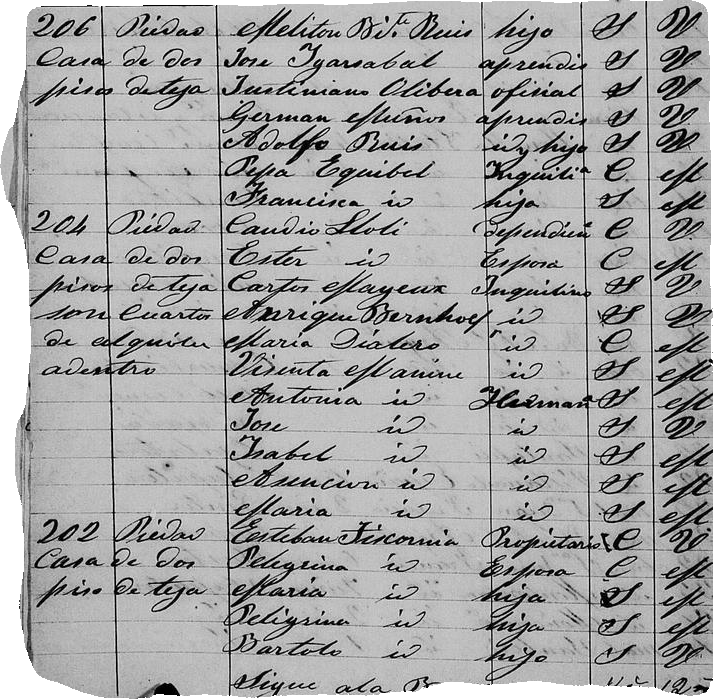 206 Piedad Meliton Bta Ruis hijo S V
Casa de dos Jose Ygarsabal aprendis S V
pisos de teja Justiniano Olibera ofisial S V
German Muños aprendis S V
Adolfo Ruis id y hijo S V
Pepa Equibel Ynquilia C M
Francisca id hija S M
204 Piedad Caudio Lloli dependien C V
Casa de dos Ester id Esposa C M
pisos de teja Carlos Mayeux Ynquilino S V
son Cuartos Anrique Bernhoef id S V
de alquiler Maria id C M
adentro Visenta id S M
Antonia id Herman S M
Jose id id S V
Isabel id id S M
Asencion id id S M
Maria id id S M
202 Piedad Esteban Fiscornia Propietario C V
Casa de dos Pelegrina id Esposa C M
piso de teja Maria id hija S M
Peligrina id hija S M
Bartolo id hijo S V
Sigue ala